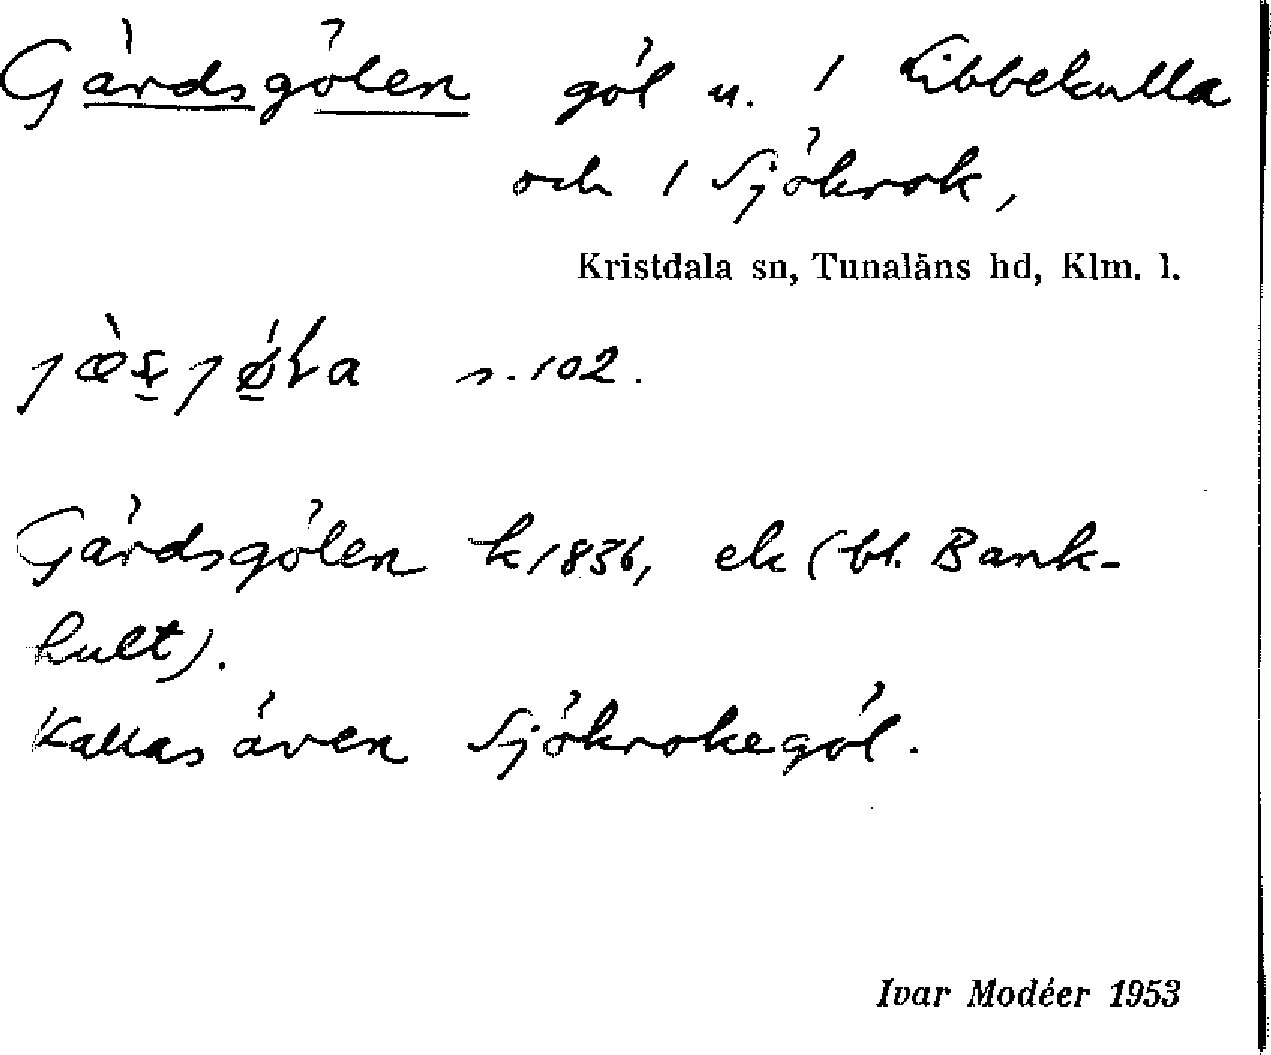 Gärdsgölen göl u. 1 Libbekulla
och 1 Sjökrok,
Kristdala sn, Tunaläns hd, Klm. l.
s. 102.
Gärdsgölen k 1836, ek (bl. Bank-
hult).
Kallas även Sjökrokegöl.
Ivar Modéer 1953